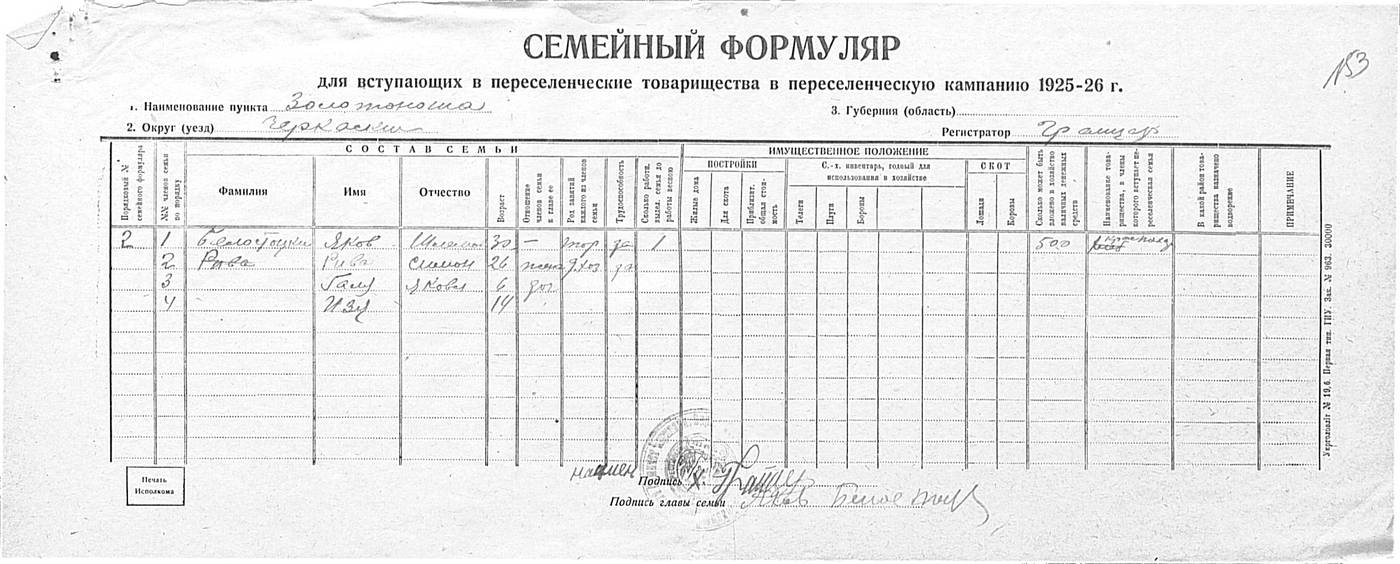 №53
СЕМЕЙНЫЙ ФОРМУЛЯР
для вступающих в переселенческие товарищества в переселенческую кампанию 1925-26 г.
1. Наименование пункта Золотоноша
3. Губерния (область)
2. Округ (уезд) Черкасский
Регистратор
СОСТАВ СЕМЬИ
ИМУЩЕСТВЕННОЕ ПОЛОЖЕНИЕ
Порядковый № семейного формуляра
№№ членов семьи по порядку
Фамилия
Имя
Отчество
Возраст
Отношение членов семьи к главе ее
Род занятий каждого из членов семьи
Трудоспособность
Сколько работн. выдел. семья до работы весною
ПОСТРОЙКИ
Жилые дома
Для скота
Приблизит. общая стоимость
С.-х. инвентарь, годный для использования в хозяйстве
Телеги
Плуги
Бороны
СКОТ
Лошади
Коровы
Сколько может быть вложено в хозяйство наличных денежных средств
Наименование товарищества, в члены которого вступает переселенческая семья
В какой район товарищества назначено водворение
ПРИМЕЧАНИЕ
2 1 Белостоцкий Яков 30 — тор за 1 500
2 Рива Рива Симон 26 жена д.хоз за
3 Галя Яковл 6 доч
4 Изя 14
Печать Исполкома
Подпись
Подпись главы семьи Яков Белостоцк
Укрголовліт № 19,6. Первая тип. ГИУ. Зак. № 963. 30000